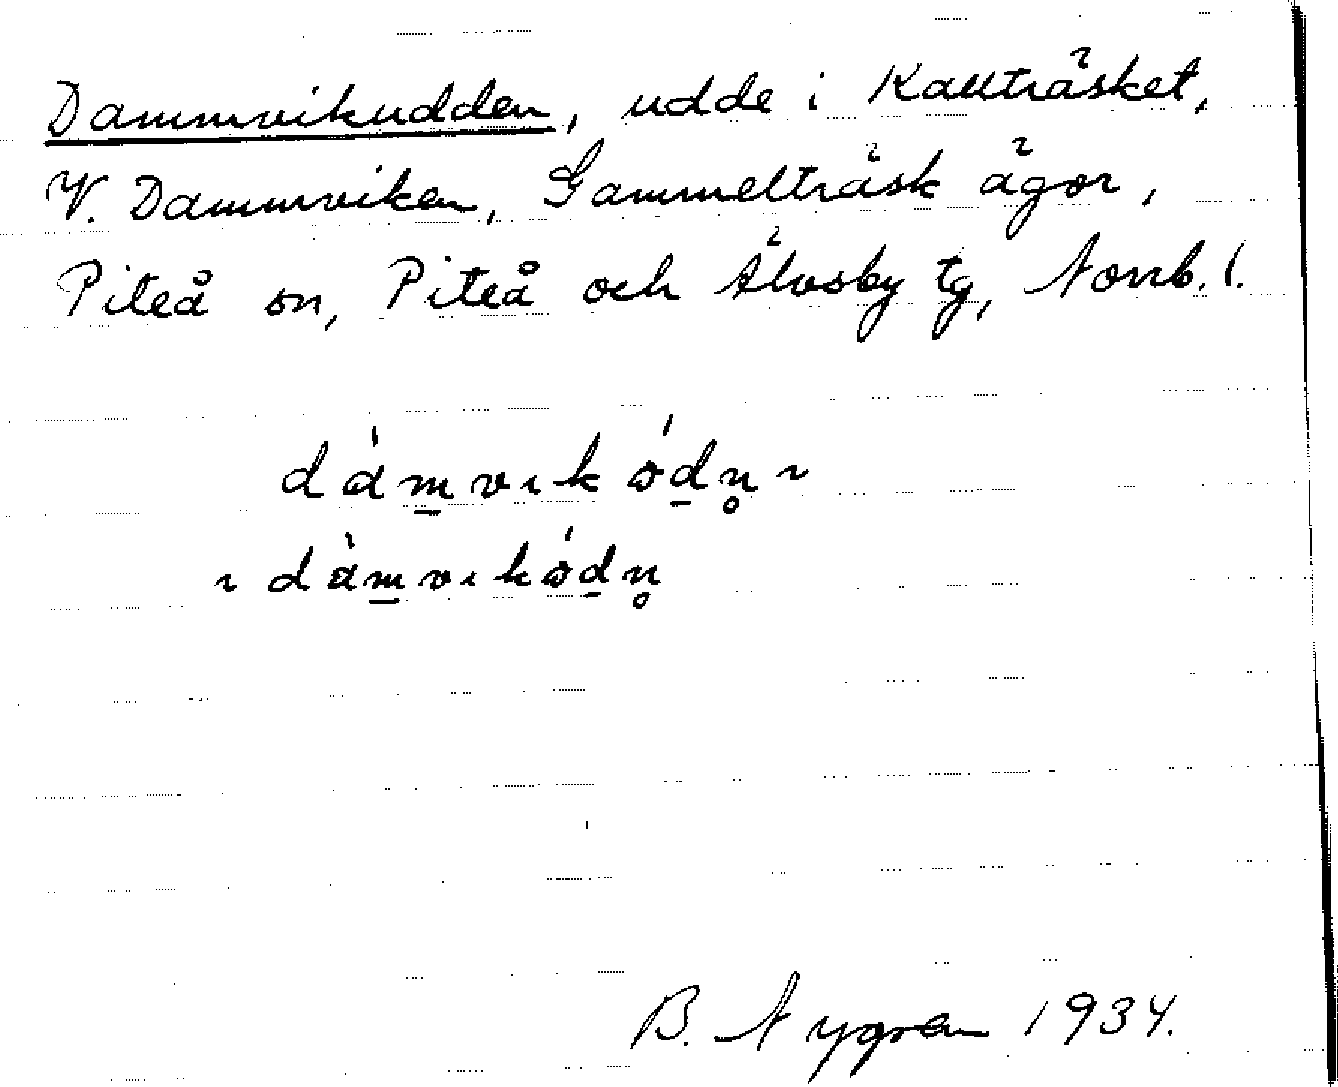 Dammvikudden, udde i Kallträsket,
V. Dammviken, Gammelträsk ägor,
Piteå sn, Piteå och Älvsby tg, Norrb. l.
B. Nygren 1934.